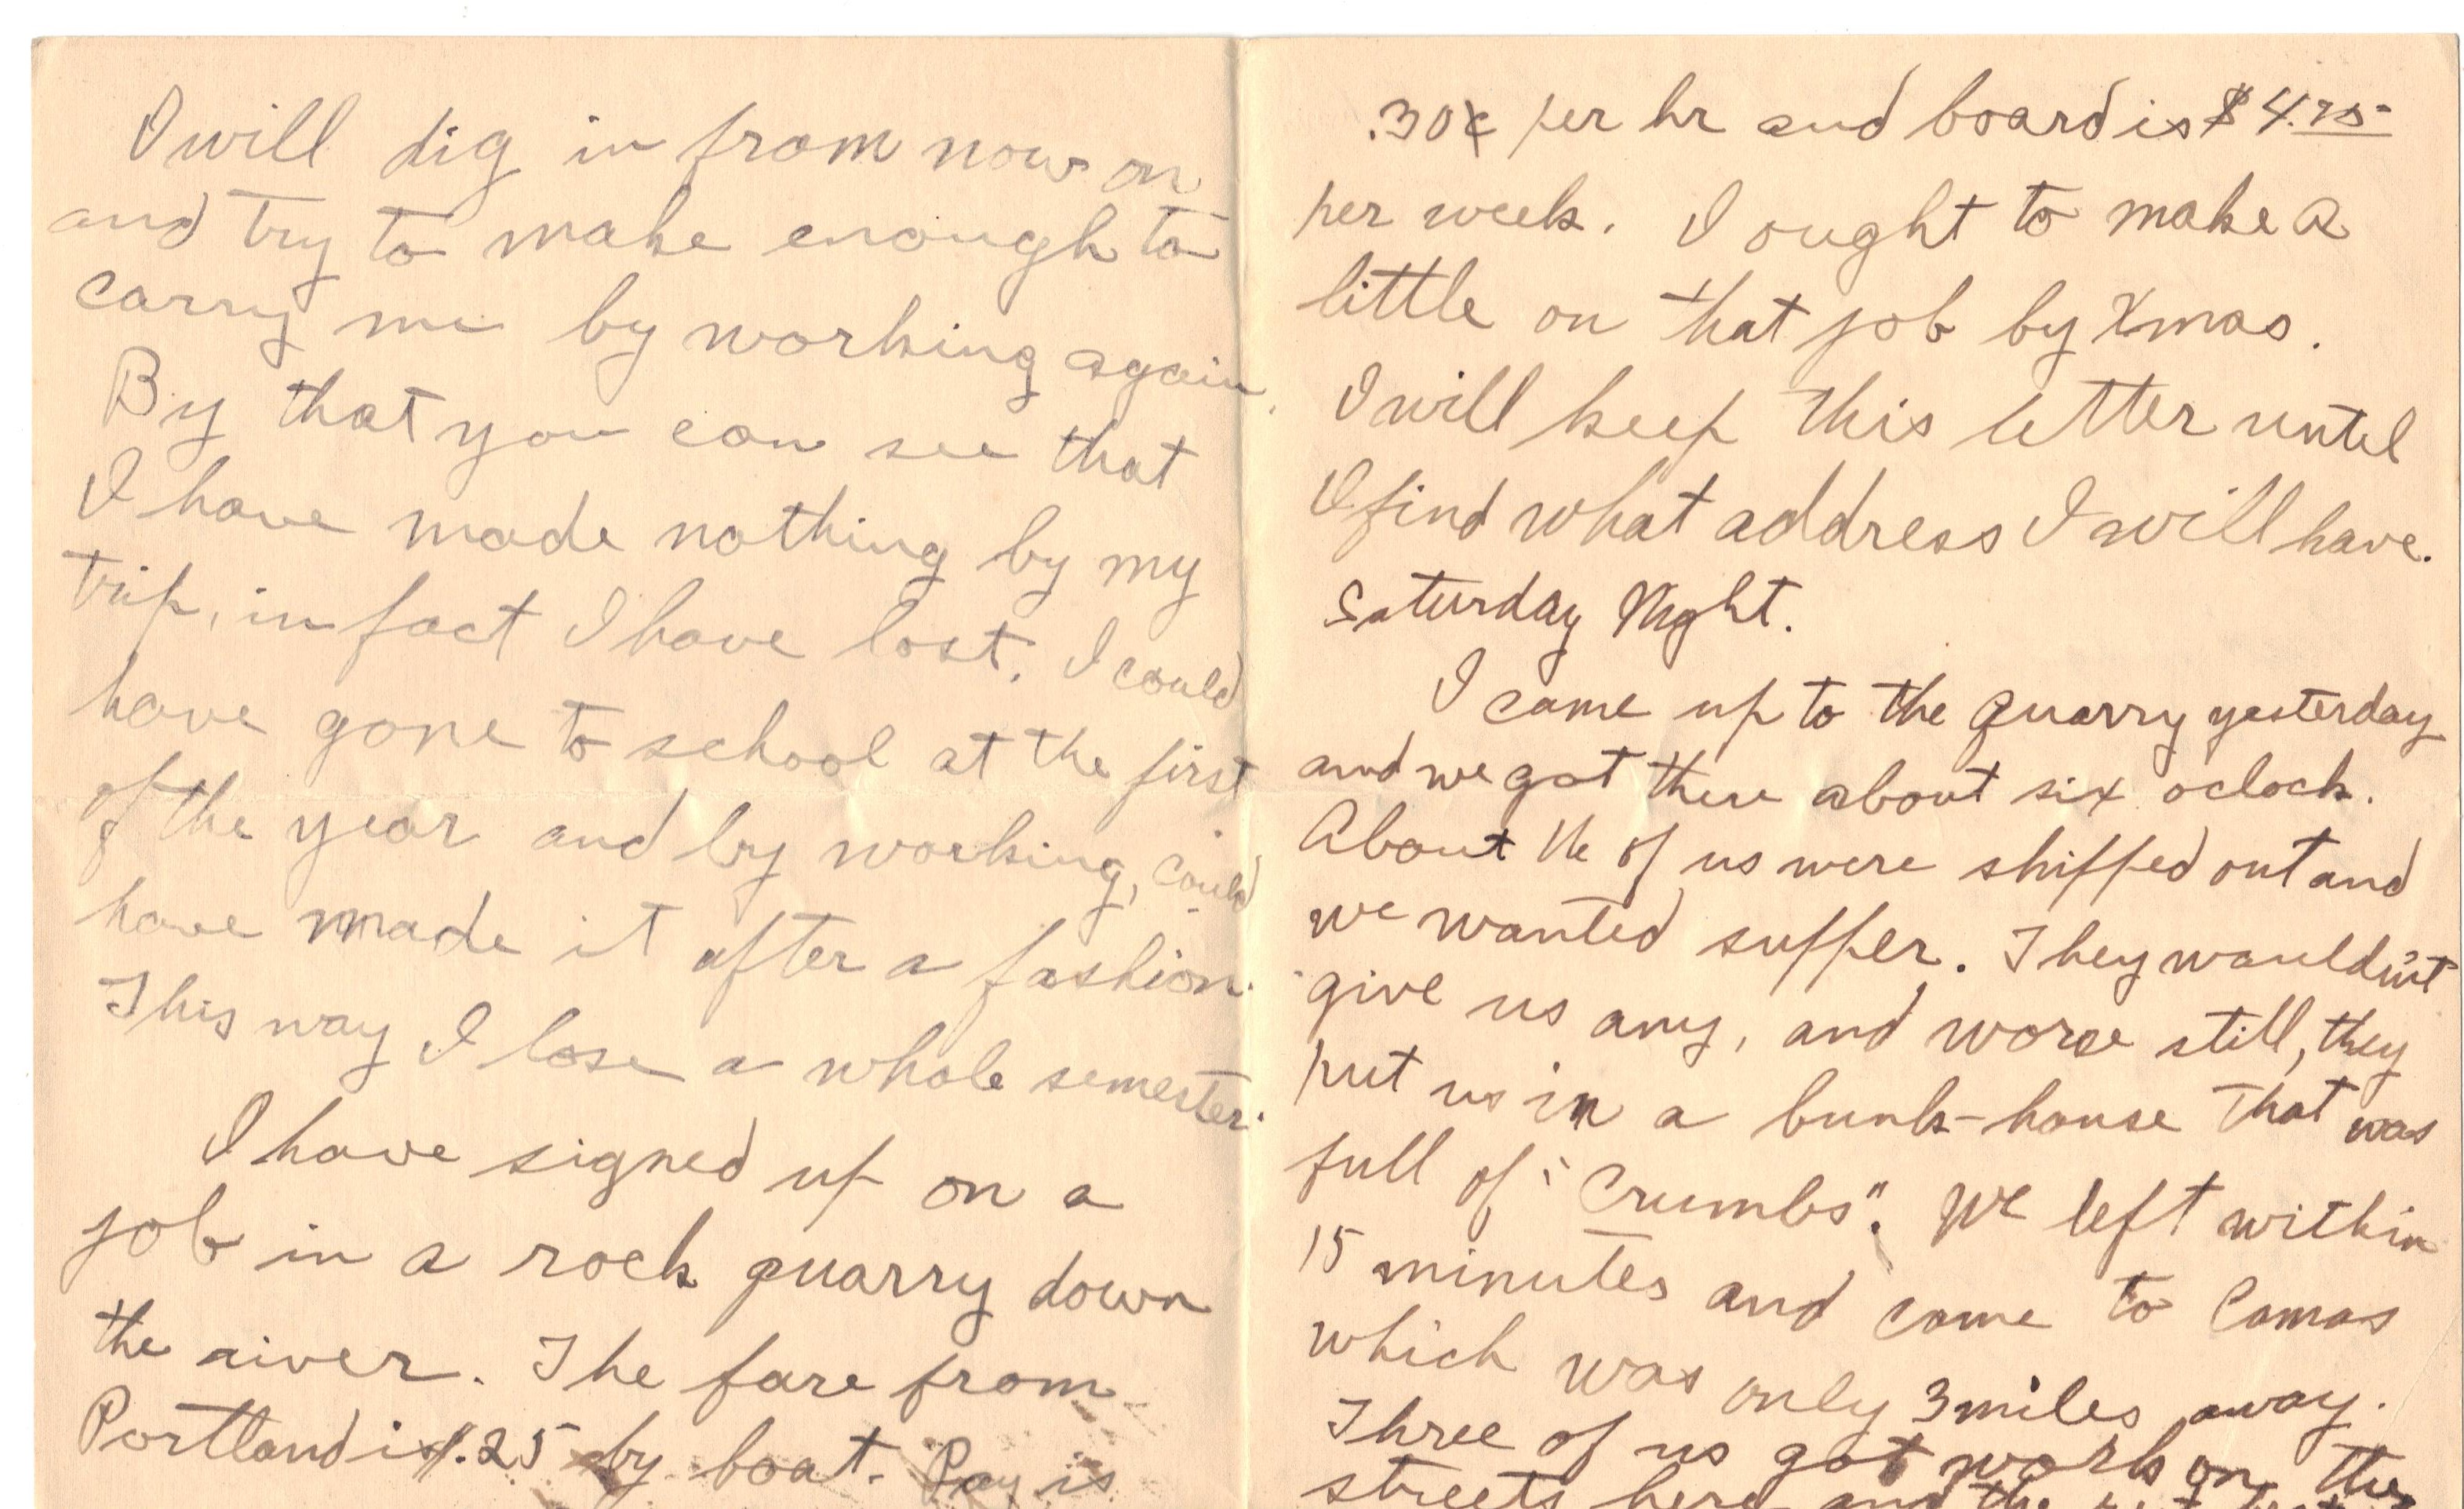 I will dig in from now on
and try to make enough to
carry me by working again.
By that you can see that
I have made nothing by my
trip, in fact I have lost. I could
have gone to school at the first
of the year and by working, could
have made it after a fashion.
This way I lose a whole semester.
I have signed up on a
job in a rock quarry down
the river. The fare from
Portland is .25 by boat. Pay is
.30¢ per hr and board is $4.75
per week. I ought to make a
little on that job by Xmas.
I will keep this letter until
I find what address I will have.
Saturday Night.
I came up to the quarry yesterday
and we got there about six oclock.
About of us were shipped out and
we wanted supper. They wouldn't
give us any, and worse still, they
put us in a bunk-house that was
full of "Crumbs". We left within
15 minutes and came to Camas
which was only 3 miles away.
Three of us got work on the
streets here and the